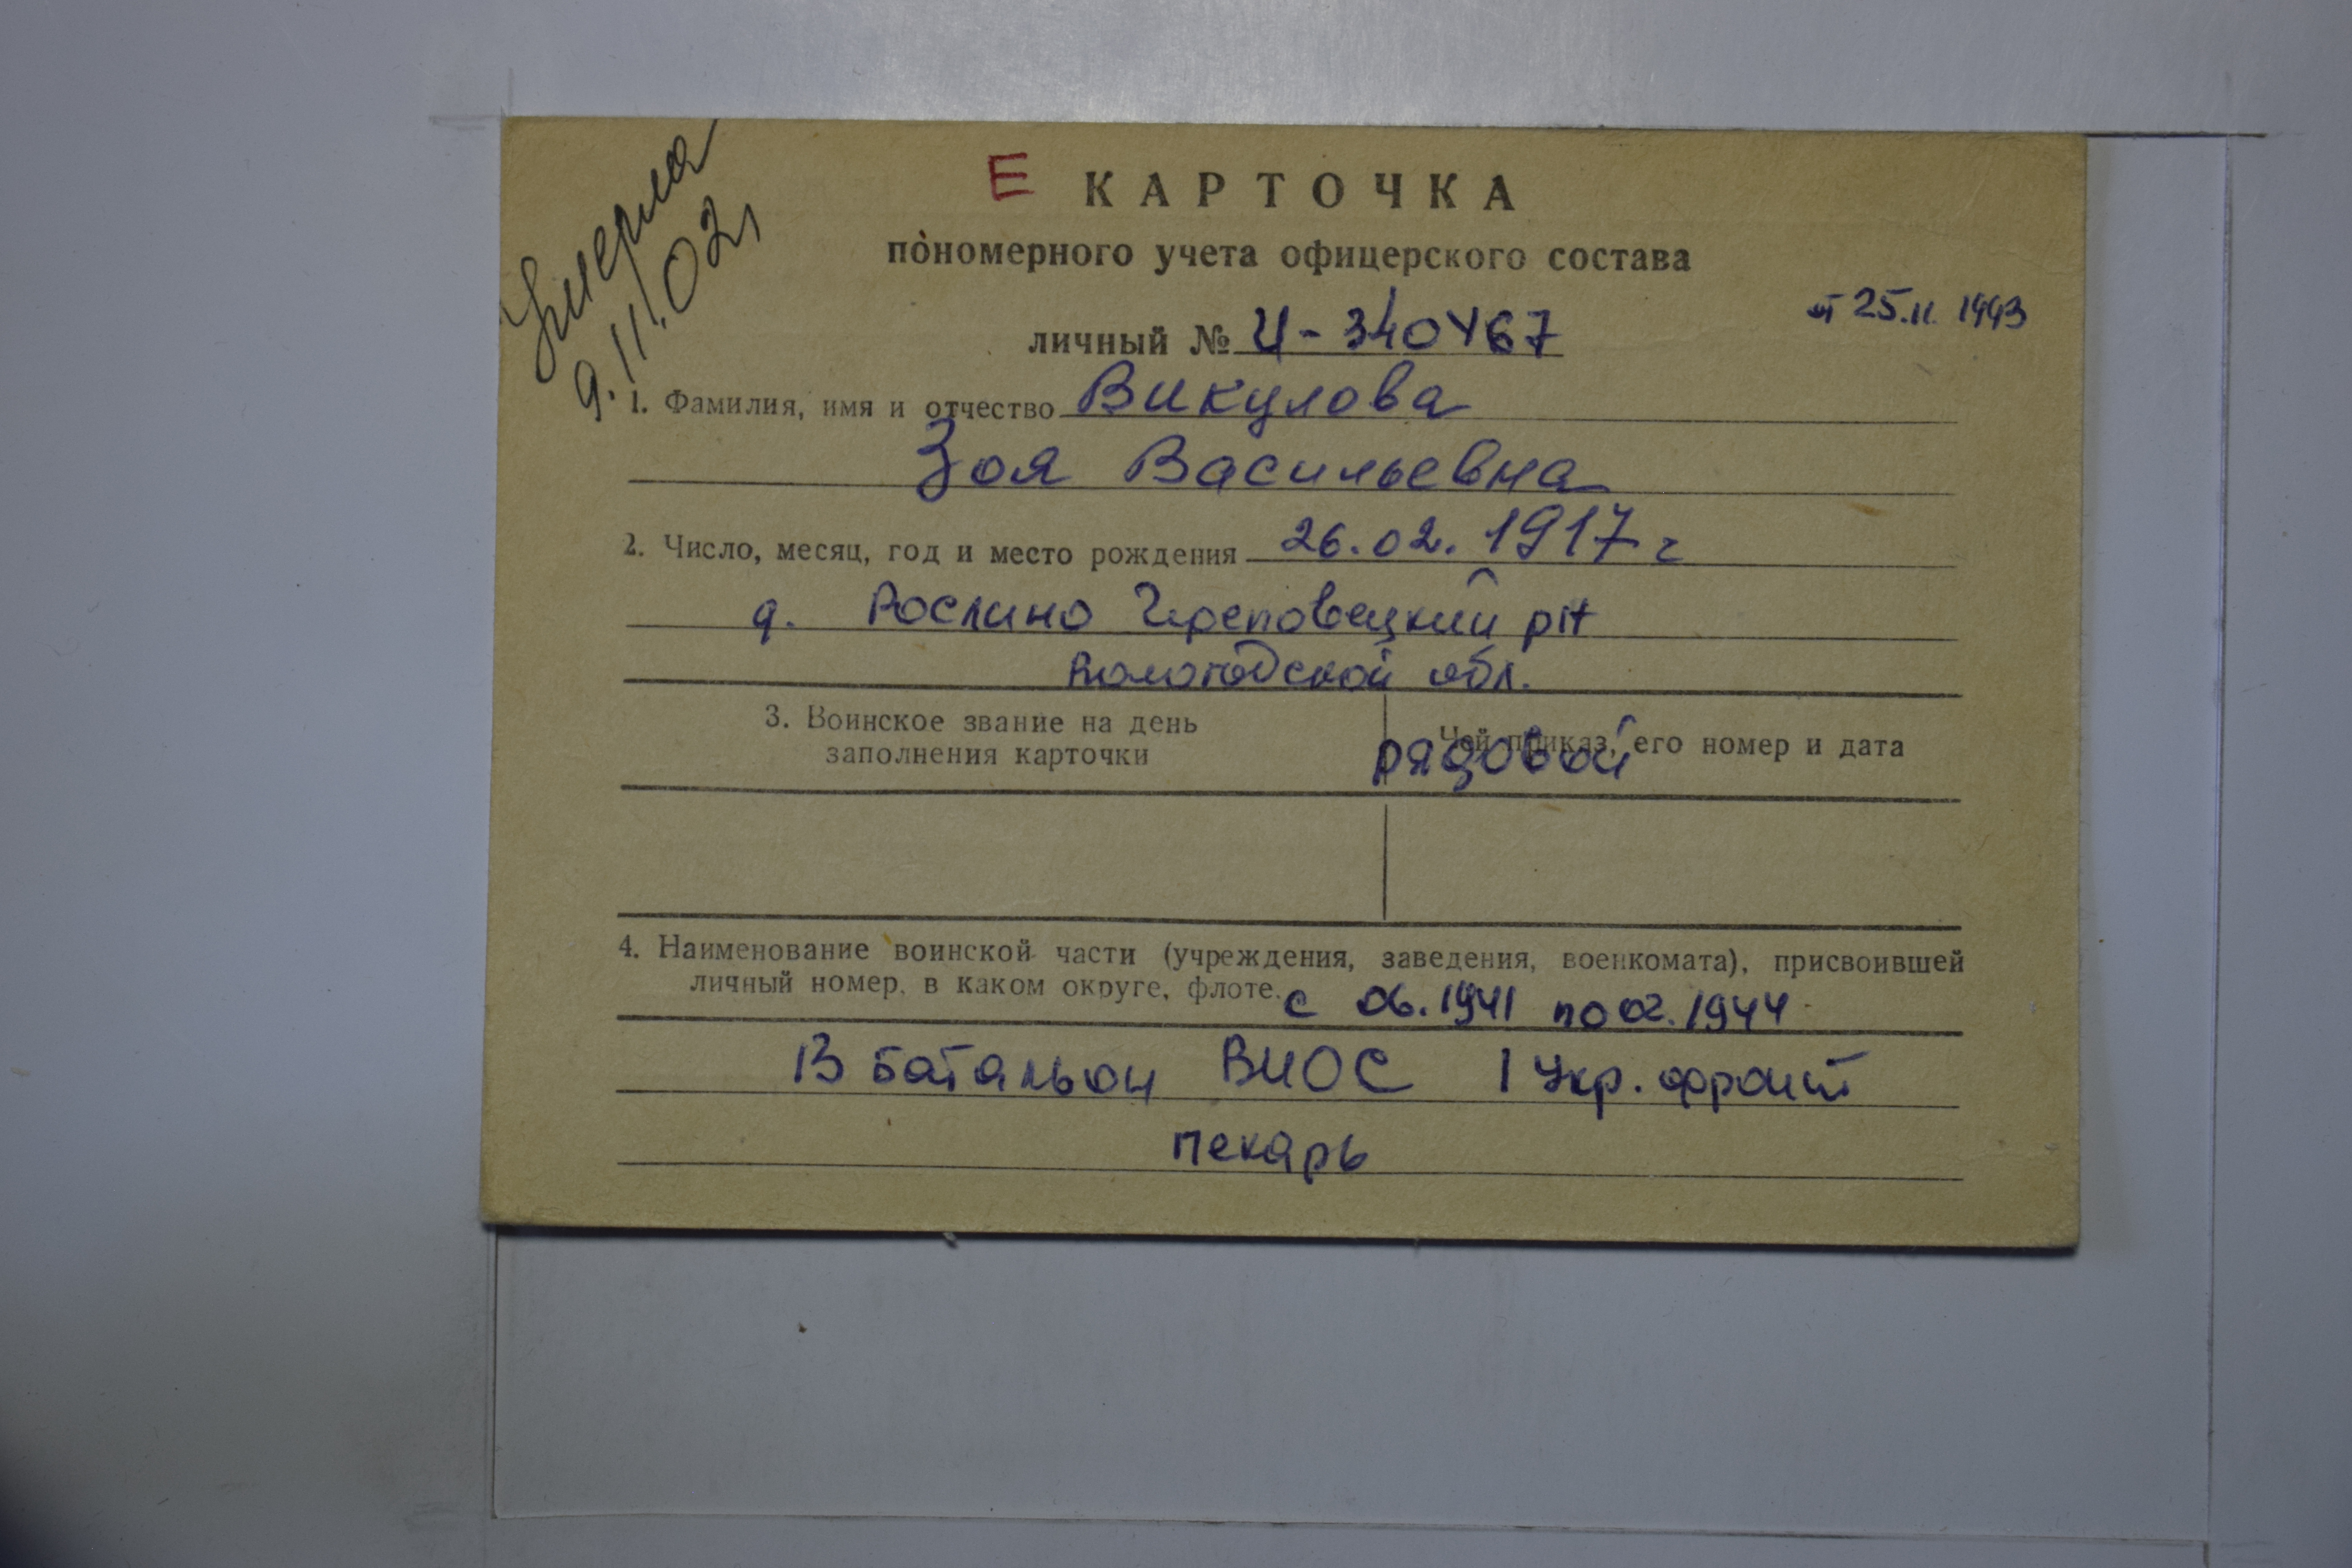 Умерла
9.11.02г
Е КАРТОЧКА
пономерного учета офицерского состава
от 25.11. 1993
личный № И-340467
1. Фамилия, имя и отчество Викулова
Зоя Васильевна
2. Число, месяц, год и место рождения 26.02.1917 г
д. Рослино Череповецкий р-н
Вологодской обл.
3. Воинское звание на день
заполнения карточки
Чей приказ, его номер и дата
рядовой
4. Наименование воинской части (учреждения, заведения, военкомата), присвоившей
личный номер, в каком округе, флоте. с 06.1941 по 02.1944
13 батальон ВНОС 1 Укр. фронт
пекарь